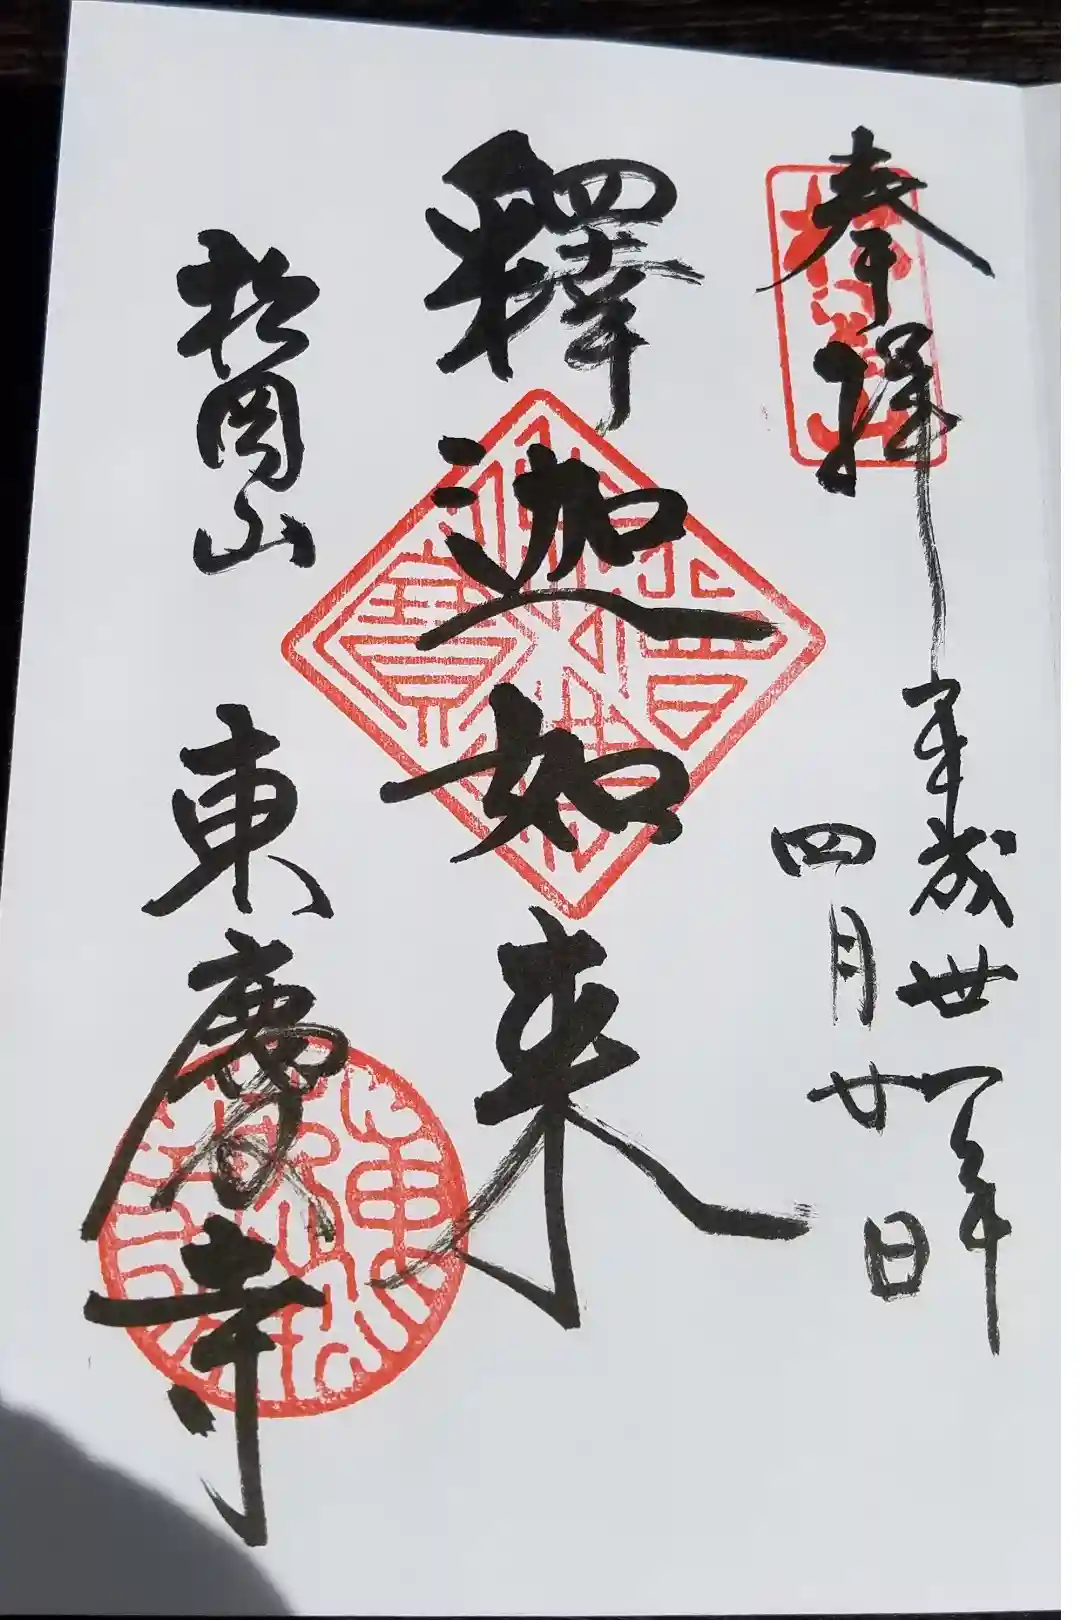 奉拝
平成卅一年
四月廿日
釋迦如来
松岡山
東慶寺